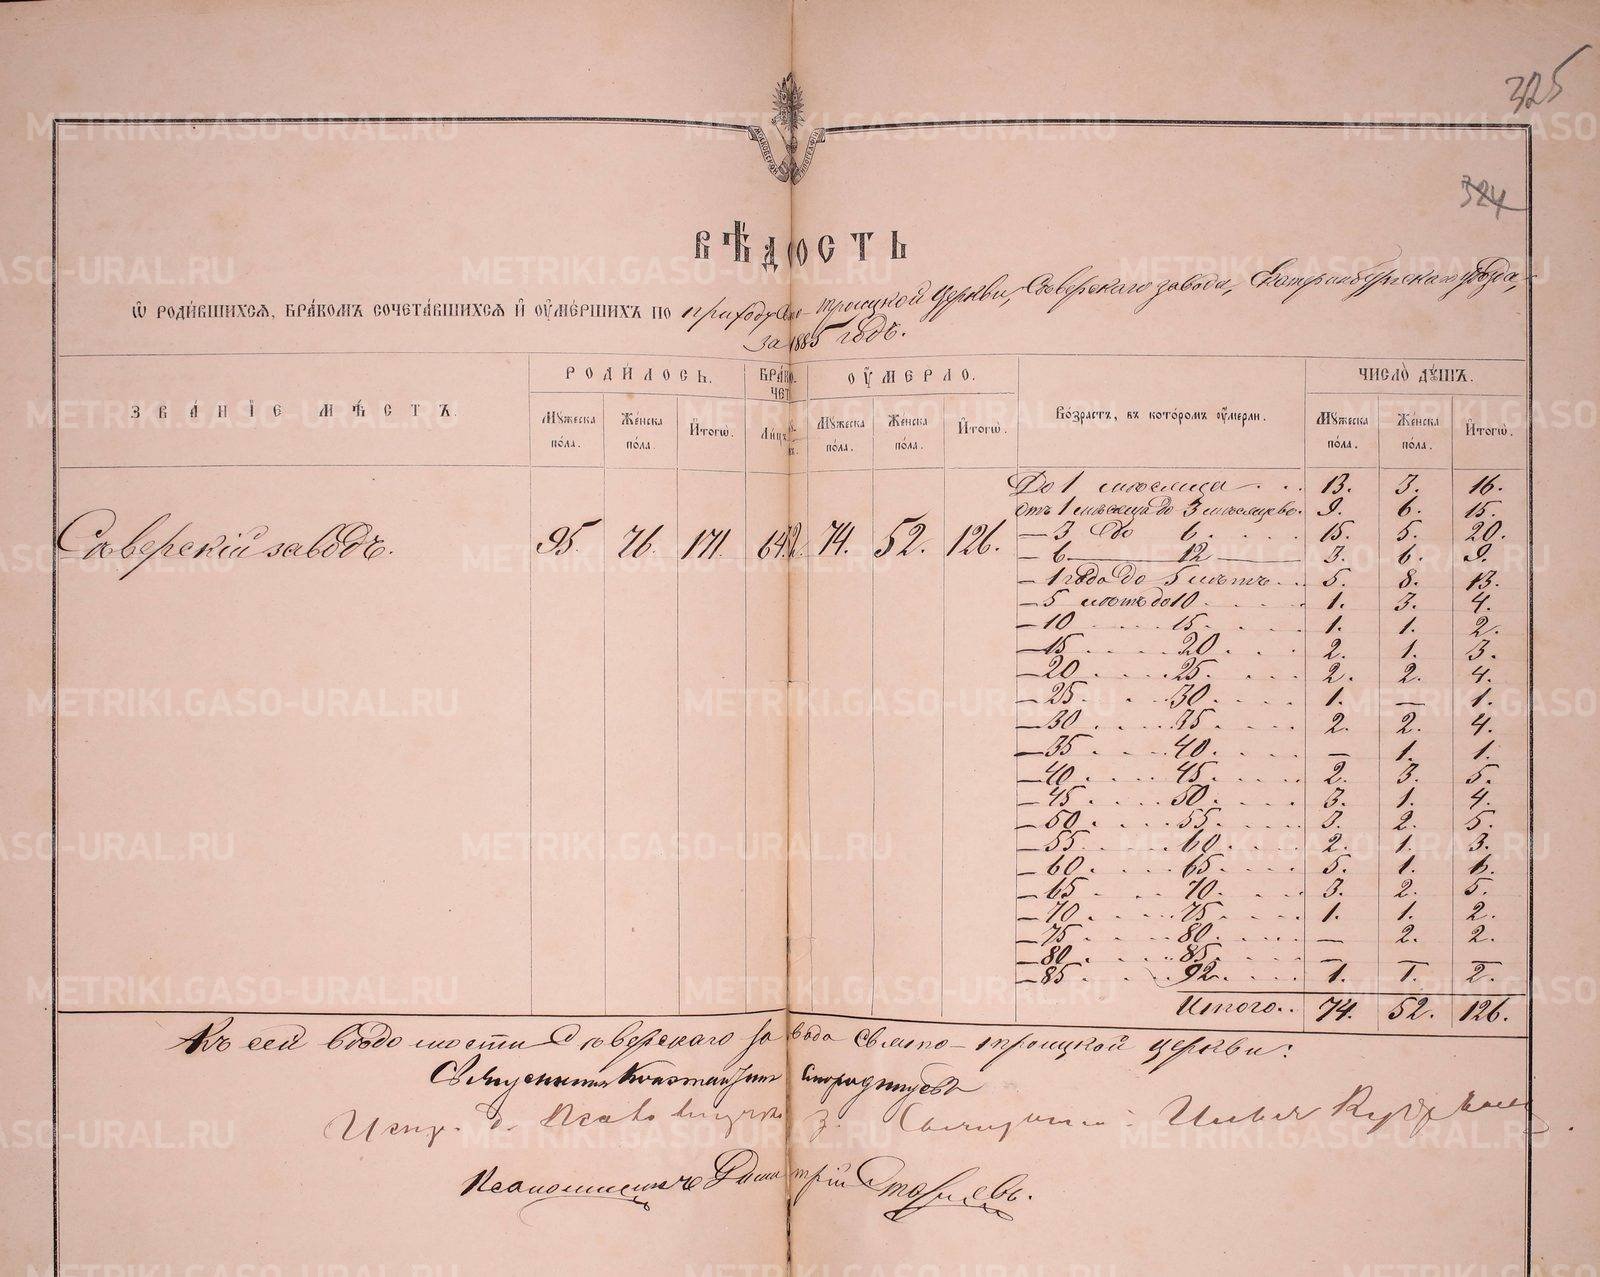 325
МОСКОВСКОЙ ТИПОГРАФІИ
324
ВѢДОСТЬ
Ѡ РОДИВШИХСѦ, БРАКОМЪ СОЧЕТАВШИХСѦ И ОУМЕРШИХЪ ПО приходу Свято-троицкой Церкви, Сѣверскаго завода, Екатеринбургскаго уѣзда,
за 1885 годъ.
ЗВАНІЕ МѢСТЪ. РОДИЛОСЬ. БРАКО- ЧЕТ ОУМЕРЛО. Возрастъ, въ которомъ оумерли. ЧИСЛО ДУШЪ.
Мужеска пола. Женска пола. Итогѡ. Лицъ Мужеска пола. Женска пола. Итогѡ. Мужеска пола. Женска пола. Итогѡ.
Сѣверскій заводъ. 95. 76. 171. 74. 52. 126.
До 1 мѣсяца 13. 3. 16.
отъ 1 мѣсяца до 3 мѣсяцевъ. 9. 6. 15.
— 3 до 6 15. 5. 20.
— 6 — 12 3. 6. 9.
— 1 года до 5 лѣтъ 5. 8. 13.
— 5 лѣтъ до 10 1. 3. 4.
— 10 15. 1. 1. 2.
— 15 20 2. 1. 3.
— 20 25. 2. 2. 4.
— 25 30 1. — 1.
— 30 35 2. 2. 4.
— 35 40 — 1. 1.
— 40 45 2. 3. 5.
— 45 50 3. 1. 4.
— 50 55 3. 2. 5.
— 55 60 2. 1. 3.
— 60 65 5. 1. 6.
— 65 70 3. 2. 5.
— 70 75 1. 1. 2.
— 75 80 — 2. 2.
— 80 85 — — —
— 85 92 1. 1. 2.
Итого 74. 52. 126.
Къ сей вѣдомости Сѣверскаго завода Свято-троицкой церкви:
Священникъ Константинъ
Испр. д. Псаломщика Илья
Псаломщикъ Димитрій
METRIKI.GASO-URAL.RU